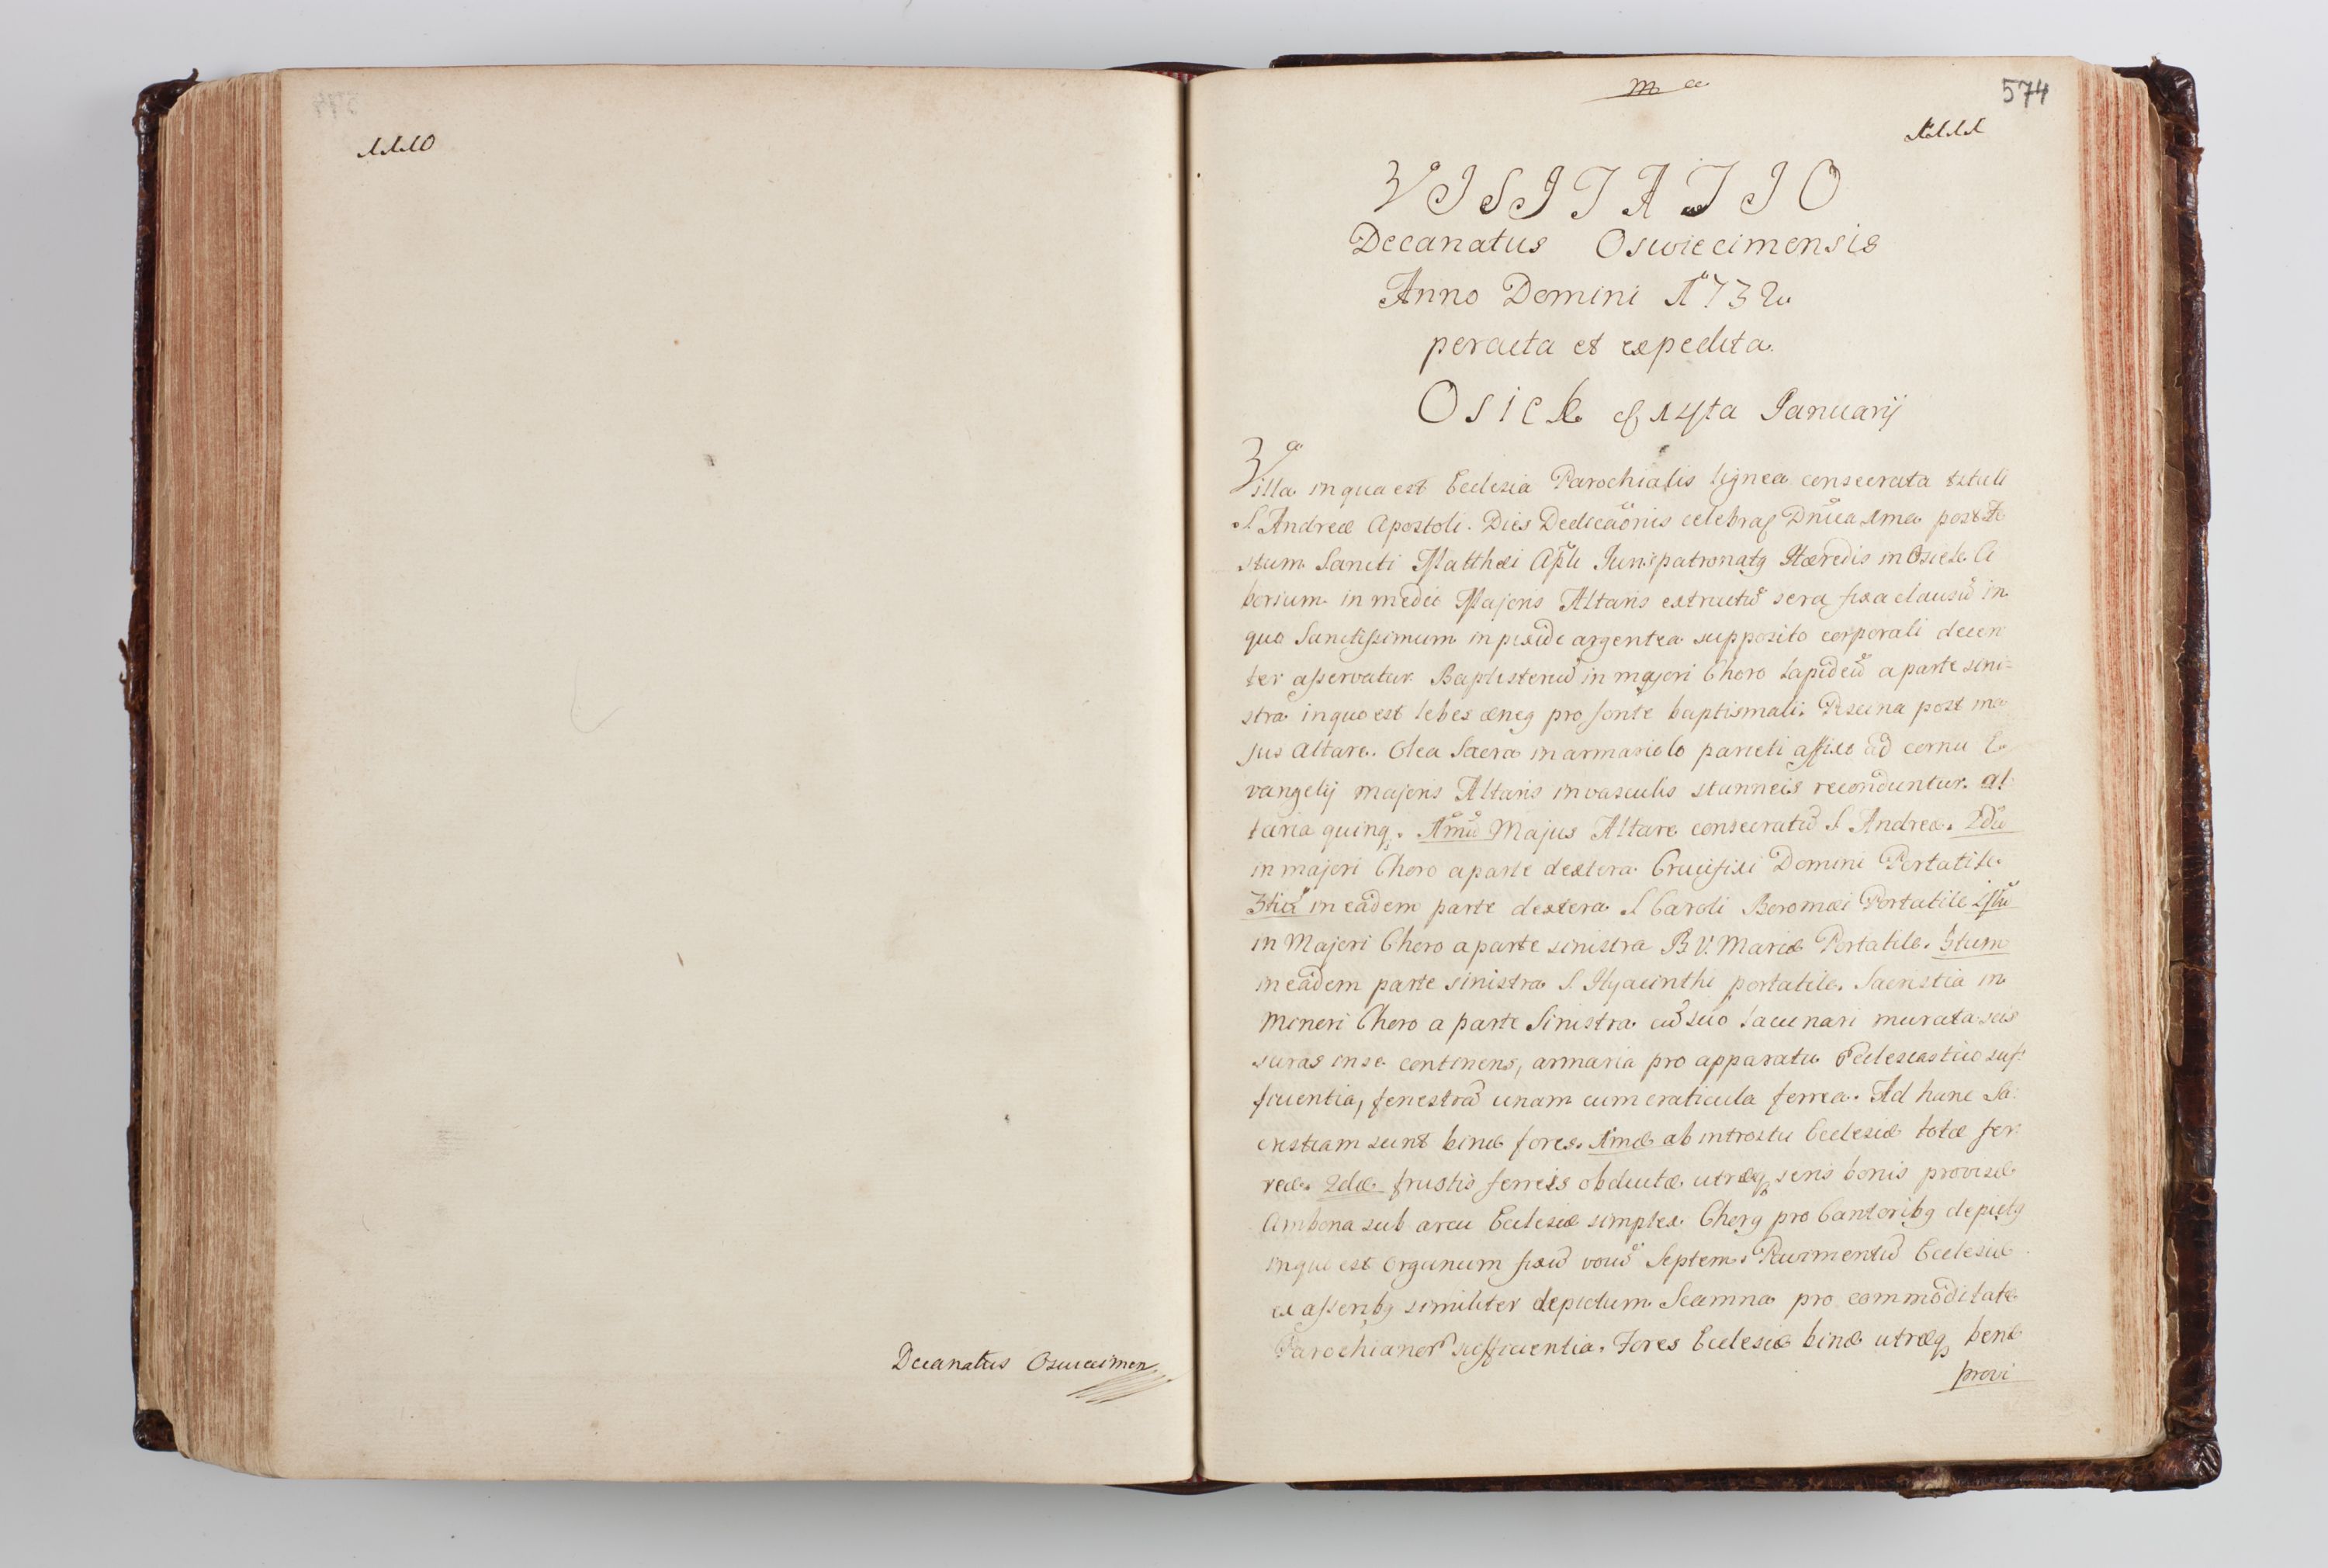 1110
Decanatus Oswiecimen
574
1111
VISITATIO
Decanatus Oswiecimensis
Anno Domini 1732
peracta et expedita.
Osiek 14ta Januarij
Villa in qua est Ecclesia Parochialis lignea consecrata tituli
S Andreæ Apostoli. Dies Dedicaõnis celebrať Dnĩca 1ma post Fe
stum Sancti Matthæi Apľi Jurispatronatꝰ Hæredis in Osiek. Ci
borium in medio Majoris Altaris extructũ sera fixa clausũ in
quo Sanctissimum in pixide argentea supposito corporali decen
ter asservatur. Baptisteriũ in majori Choro lapideũ a parte sini-
stra in quo est lebes æneꝰ pro fonte baptismali. Piscina post ma
jus Altare. Olea Sacra in armariolo parieti affixo ad cornu E
vangelij majoris Altaris in vasculis stanneis reconduntur. Al
taria quinqꝫ. 1mũ Majus Altare consecratũ S Andreæ. 2dũ
in majori Choro a parte dextera Crucifixi Domini Portatile.
3tiũ in eadem parte dextera S Caroli Boromæi Portatile 4tũ
in Majori Choro a parte sinistra B V. Mariæ Portatile. 5tum
in eadem parte sinistra S. Hyacinthi portatile. Sacristia in
minori Choro a parte Sinistra cũ suo lacunari murata scis
suras in se continens, armaria pro apparatu Ecclesiastico suf:
ficientia, fenestrã unam cum craticula ferrea. Ad hanc Sa:
cristiam sunt binæ fores. 1mæ ab introitu Ecclesiæ totæ fer
reæ. 2dæ frustis ferreis obductæ utræqꝫ seris bonis provisæ
Ambona sub arcu Ecclesiæ simplex. Chorꝰ pro Cantoribꝰ depictꝰ
in quo est Organum fixũ vocũ Septem. Pavimentũ Ecclesiæ
ex asseribꝰ similiter depictum. Scamna pro commoditate
Parochianorũ sufficientia. Fores Ecclesiæ binæ utræqꝫ bene
provi